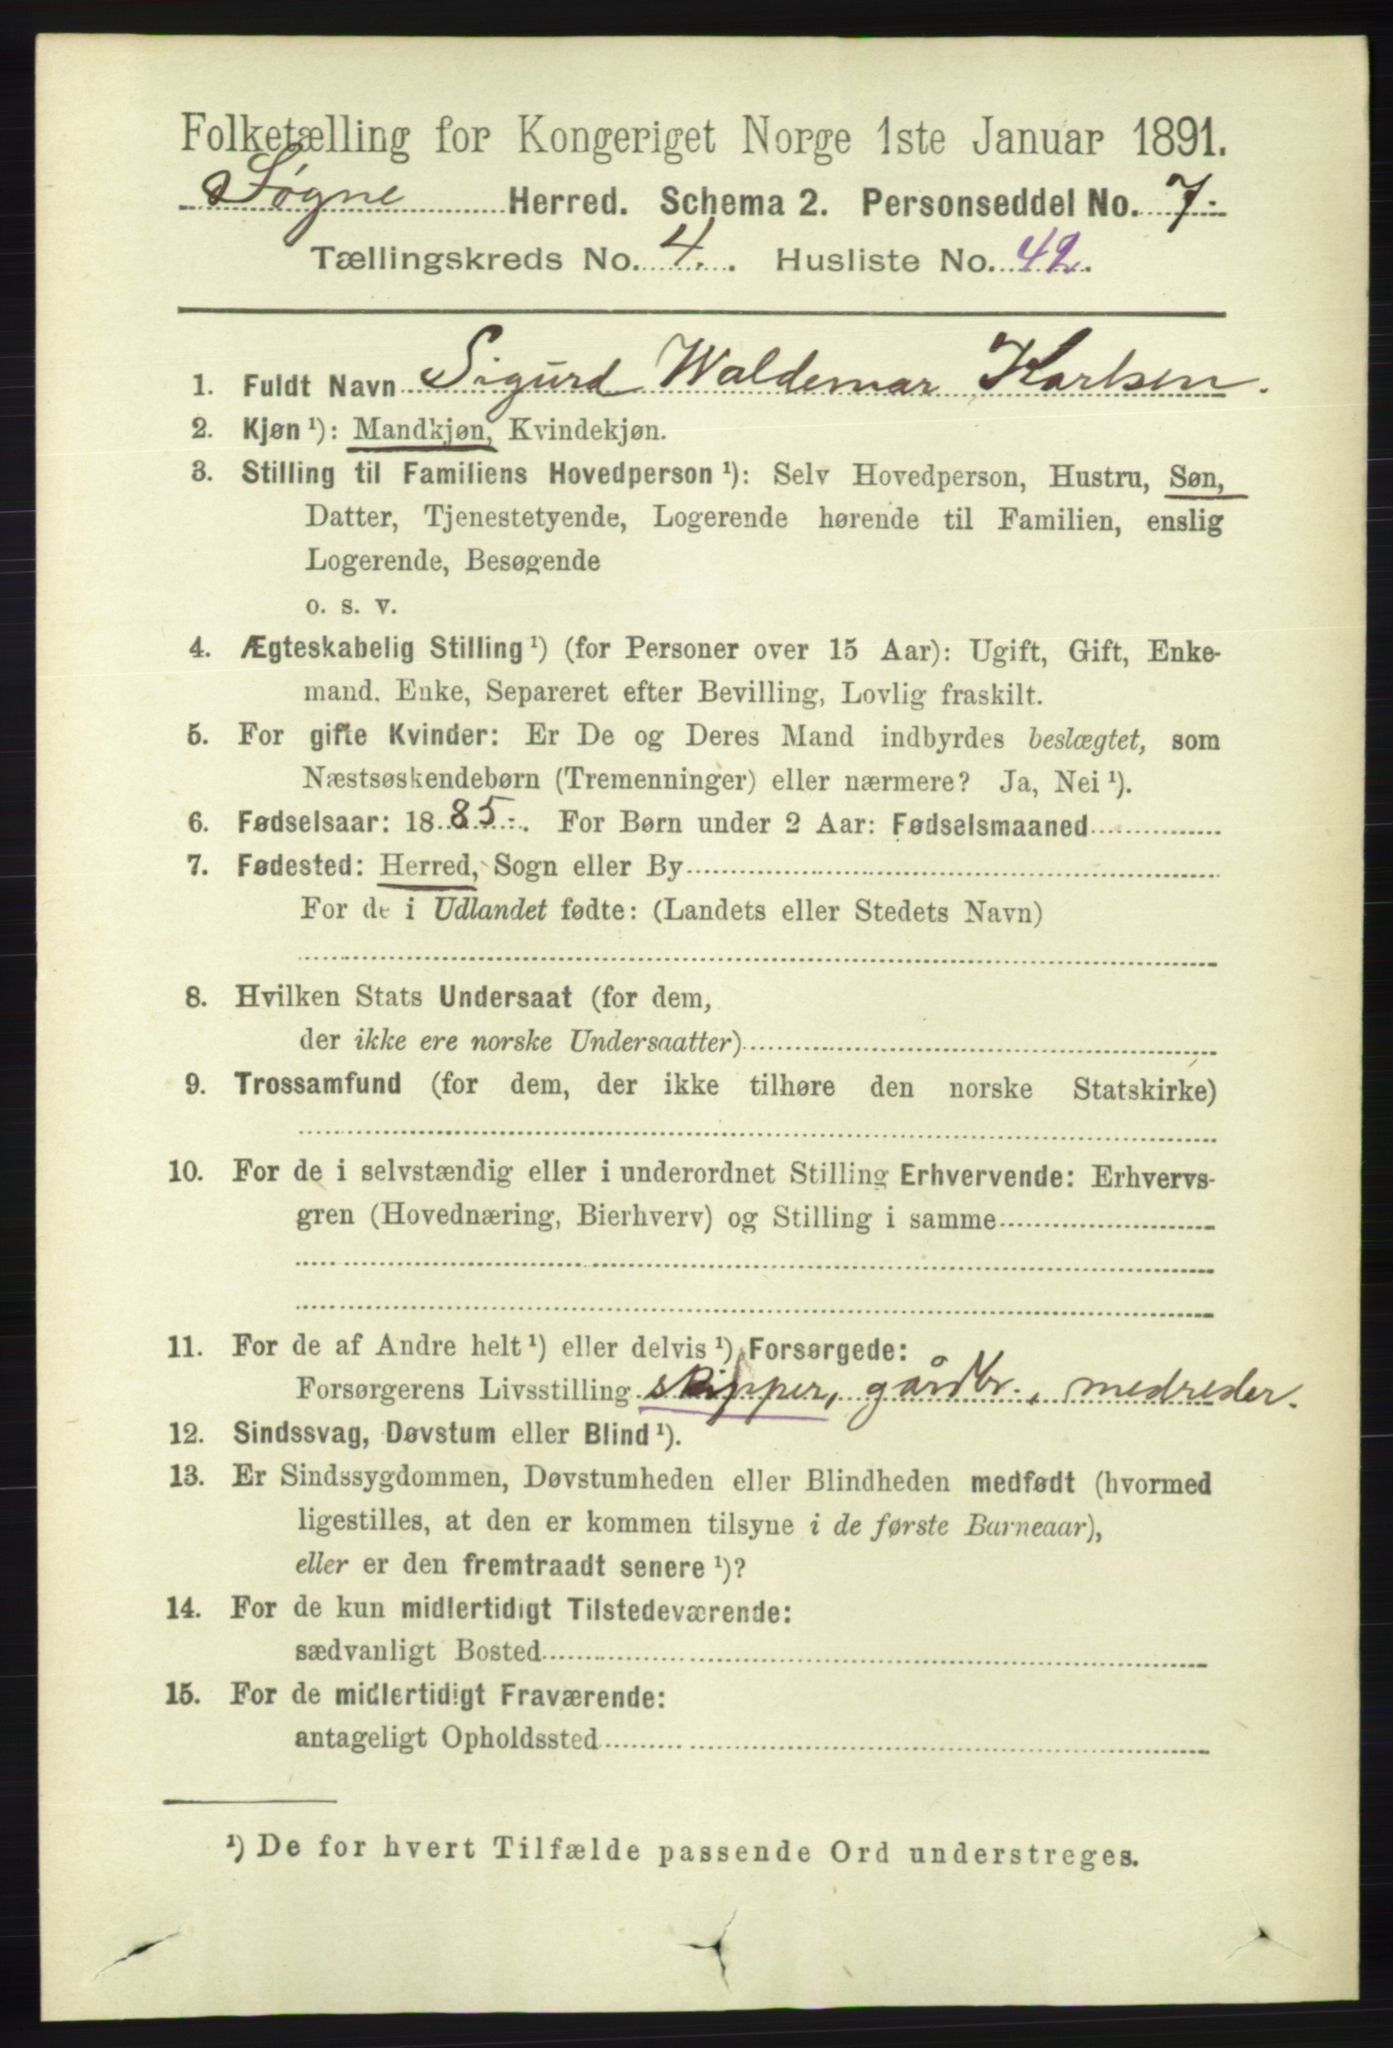 Folketælling for Kongeriget Norge 1ste Januar 1891.
Søgne Herred. Schema 2. Personseddel No. 7.
Tællingskreds No. 4. Husliste No. 42.
1. Fuldt Navn Sigurd Waldemar Karlsen.
2. Kjøn ¹): Mandkjøn, Kvindekjøn.
3. Stilling til Familiens Hovedperson ¹): Selv Hovedperson, Hustru, Søn,
Datter, Tjenestetyende, Logerende hørende til Familien, enslig
Logerende, Besøgende
o. s. v.
4. Ægteskabelig Stilling ¹) (for Personer over 15 Aar): Ugift, Gift, Enke-
mand, Enke, Separeret efter Bevilling, Lovlig fraskilt.
5. For gifte Kvinder: Er De og Deres Mand indbyrdes beslægtet, som
Næstsøskendebørn (Tremenninger) eller nærmere? Ja, Nei ¹).
6. Fødselsaar: 1885. For Børn under 2 Aar: Fødselsmaaned
7. Fødested: Herred, Sogn eller By
For de i Udlandet fødte: (Landets eller Stedets Navn)
8. Hvilken Stats Undersaat (for dem,
der ikke ere norske Undersaatter)
9. Trossamfund (for dem, der ikke tilhøre den norske Statskirke)
10. For de i selvstændig eller i underordnet Stilling Erhvervende: Erhvervs-
gren (Hovednæring, Bierhverv) og Stilling i samme
11. For de af Andre helt ¹) eller delvis ¹) Forsørgede:
Forsørgerens Livsstilling skipper, gårdbr., medreder.
12. Sindssvag, Døvstum eller Blind ¹).
13. Er Sindssygdommen, Døvstumheden eller Blindheden medfødt (hvormed
ligestilles, at den er kommen tilsyne i de første Barneaar),
eller er den fremtraadt senere ¹)?
14. For de kun midlertidigt Tilstedeværende:
sædvanligt Bosted
15. For de midlertidigt Fraværende:
antageligt Opholdssted
¹) De for hvert Tilfælde passende Ord understreges.